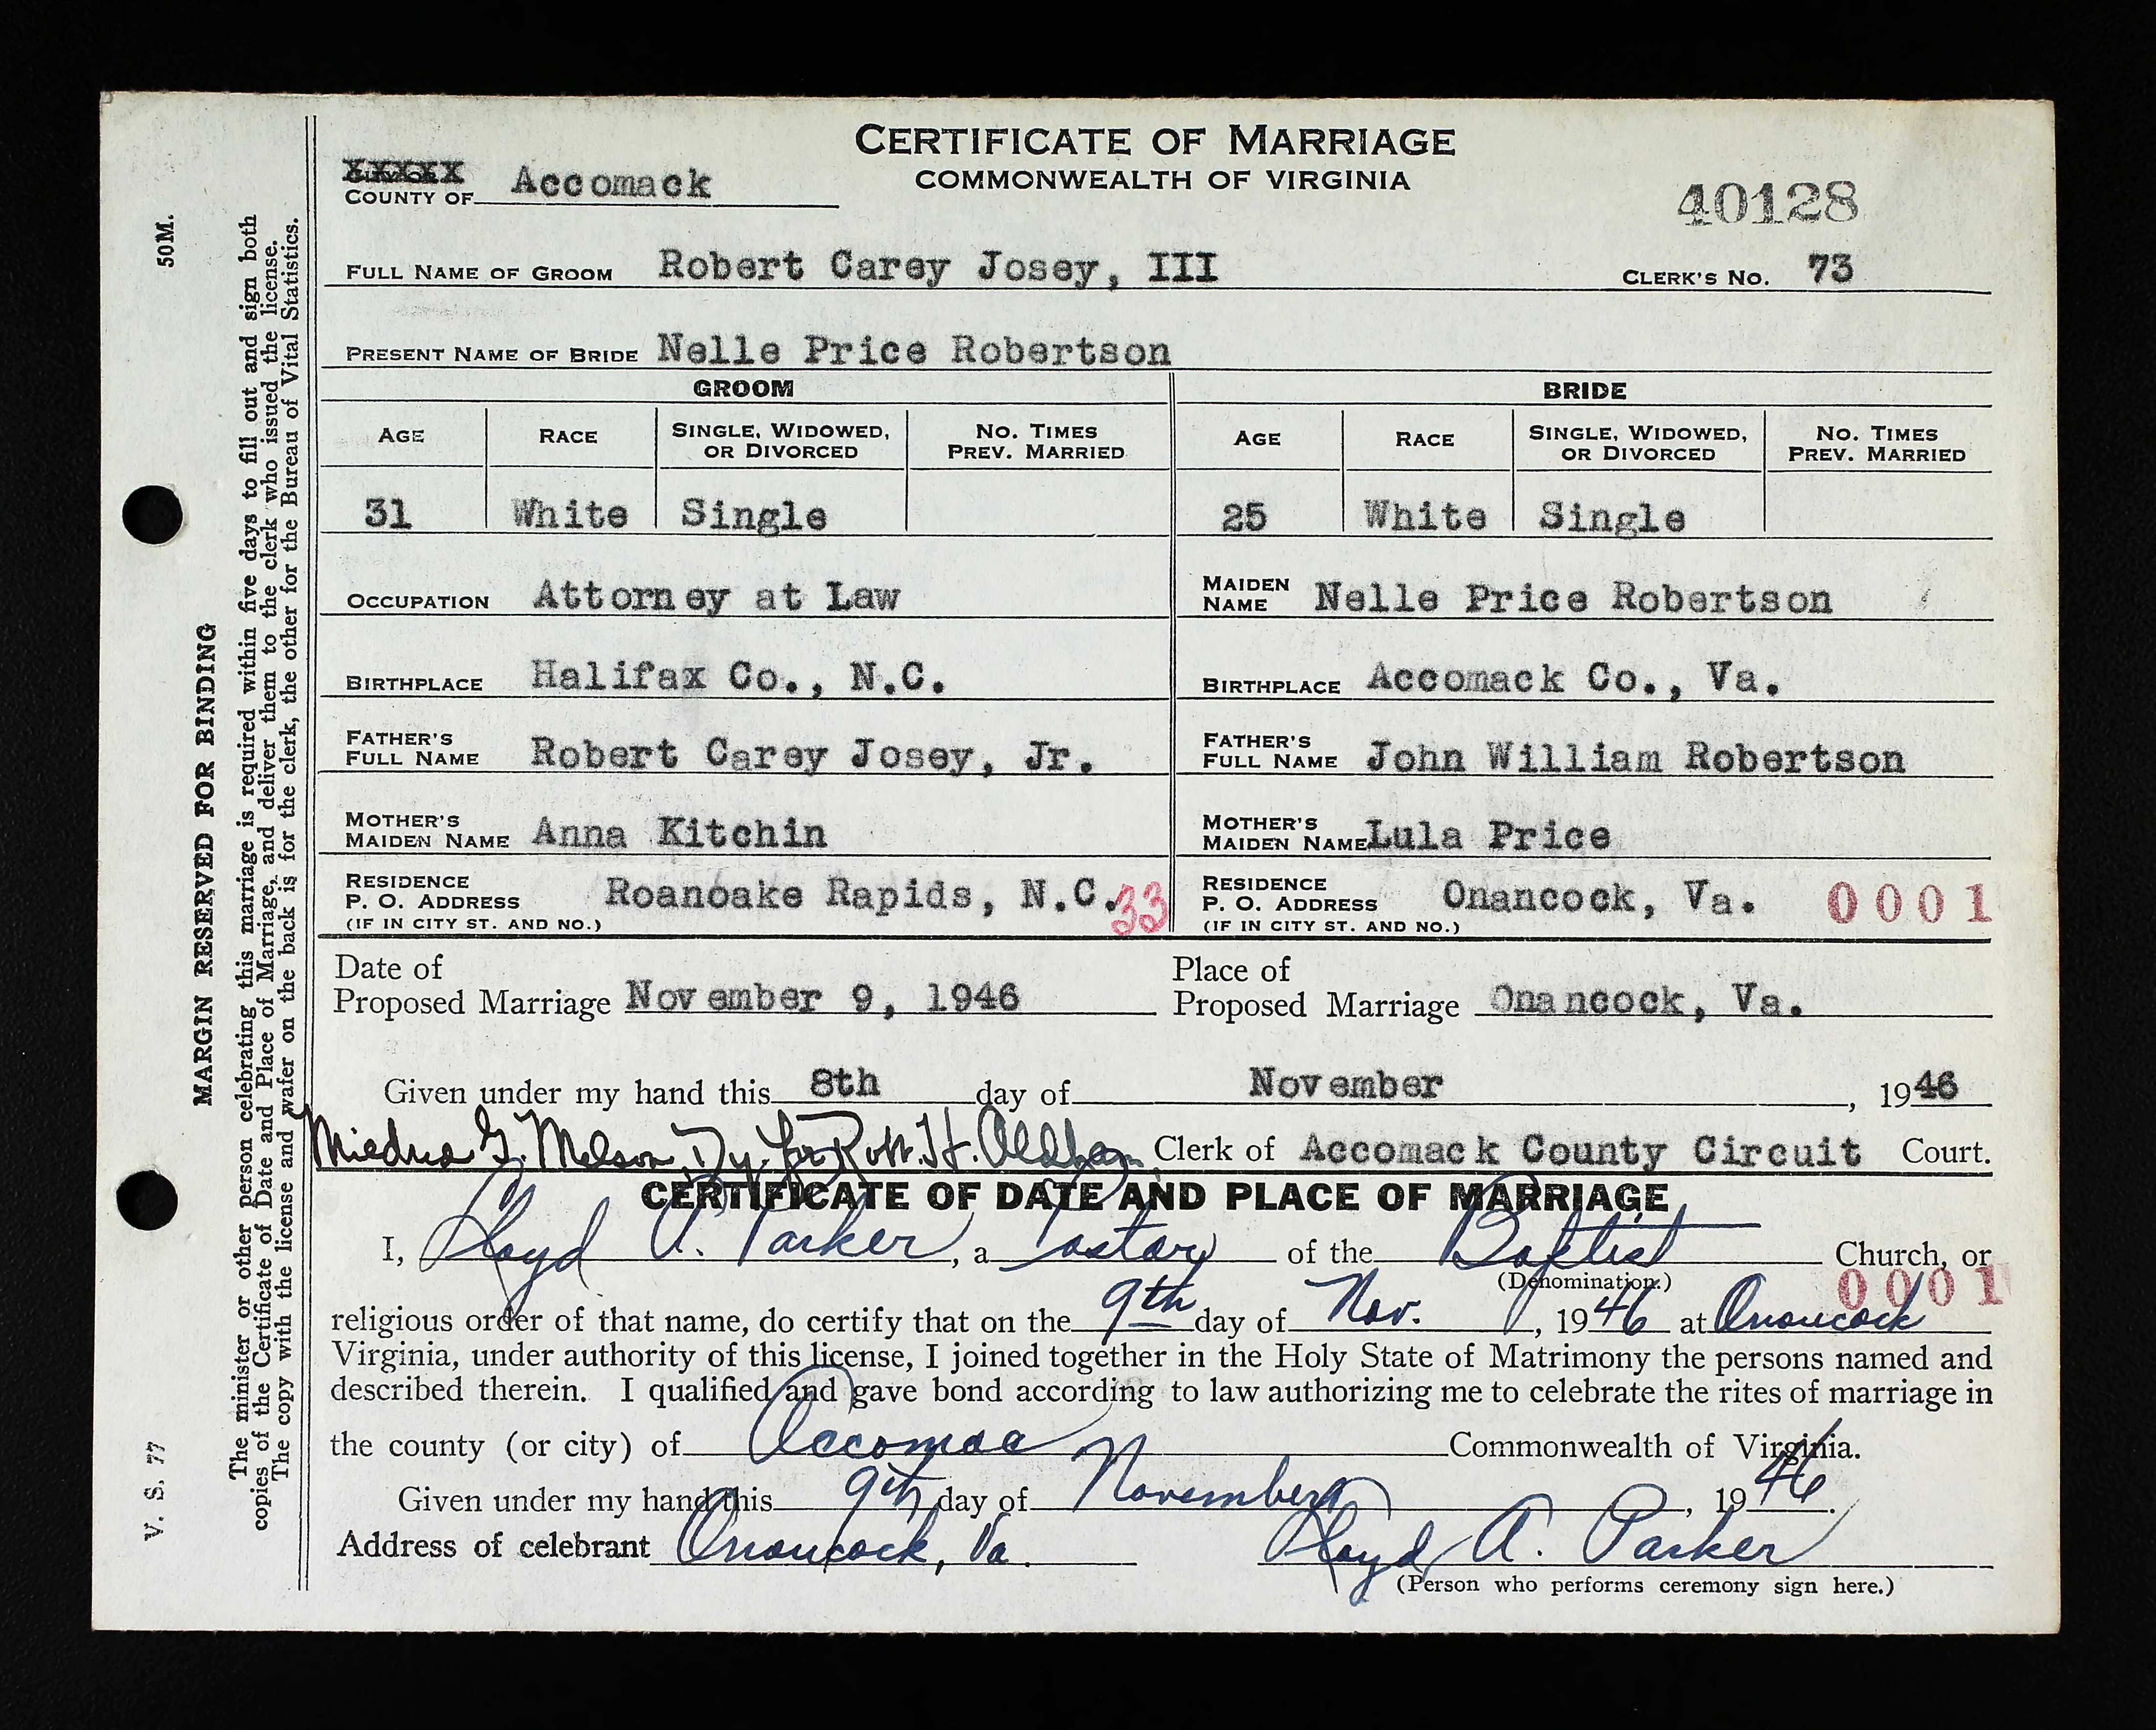 CERTIFICATE OF MARRIAGE
COMMONWEALTH OF VIRGINIA
XXXXX
COUNTY OF Accomack
40128
FULL NAME OF GROOM Robert Carey Josey, III CLERK'S NO. 73
PRESENT NAME OF BRIDE Nelle Price Robertson
GROOM BRIDE
AGE RACE SINGLE, WIDOWED, OR DIVORCED NO. TIMES PREV. MARRIED AGE RACE SINGLE, WIDOWED, OR DIVORCED NO. TIMES PREV. MARRIED
31 White Single 25 White Single
OCCUPATION Attorney at Law MAIDEN NAME Nelle Price Robertson
BIRTHPLACE Halifax Co., N.C. BIRTHPLACE Accomack Co., Va.
FATHER'S FULL NAME Robert Carey Josey, Jr. FATHER'S FULL NAME John William Robertson
MOTHER'S MAIDEN NAME Anna Kitchin MOTHER'S MAIDEN NAME Lula Price
RESIDENCE P. O. ADDRESS (IF IN CITY ST. AND NO.) Roanoake Rapids, N.C. 33 RESIDENCE P. O. ADDRESS (IF IN CITY ST. AND NO.) Onancock, Va. 0001
Date of Proposed Marriage November 9, 1946 Place of Proposed Marriage Onancock, Va.
Given under my hand this 8th day of November, 1946
G. Melson, Dy. for Robt. H. Oldham, Clerk of Accomack County Circuit Court.
CERTIFICATE OF DATE AND PLACE OF MARRIAGE
I, Lloyd A. Parker, a Pastor of the Baptist Church, or
(Denomination.)
0001
religious order of that name, do certify that on the 9th day of Nov., 1946 at Onancock
Virginia, under authority of this license, I joined together in the Holy State of Matrimony the persons named and
described therein. I qualified and gave bond according to law authorizing me to celebrate the rites of marriage in
the county (or city) of Accomac Commonwealth of Virginia.
Given under my hand this 9th day of November, 1946.
Address of celebrant Onancock, Va. Lloyd A. Parker
(Person who performs ceremony sign here.)
50M.
MARGIN RESERVED FOR BINDING
V. S. 77
The minister or other person celebrating this marriage is required within five days to fill out and sign both
copies of the Certificate of Date and Place of Marriage, and deliver them to the clerk who issued the license.
The copy with the license and wafer on the back is for the clerk, the other for the Bureau of Vital Statistics.